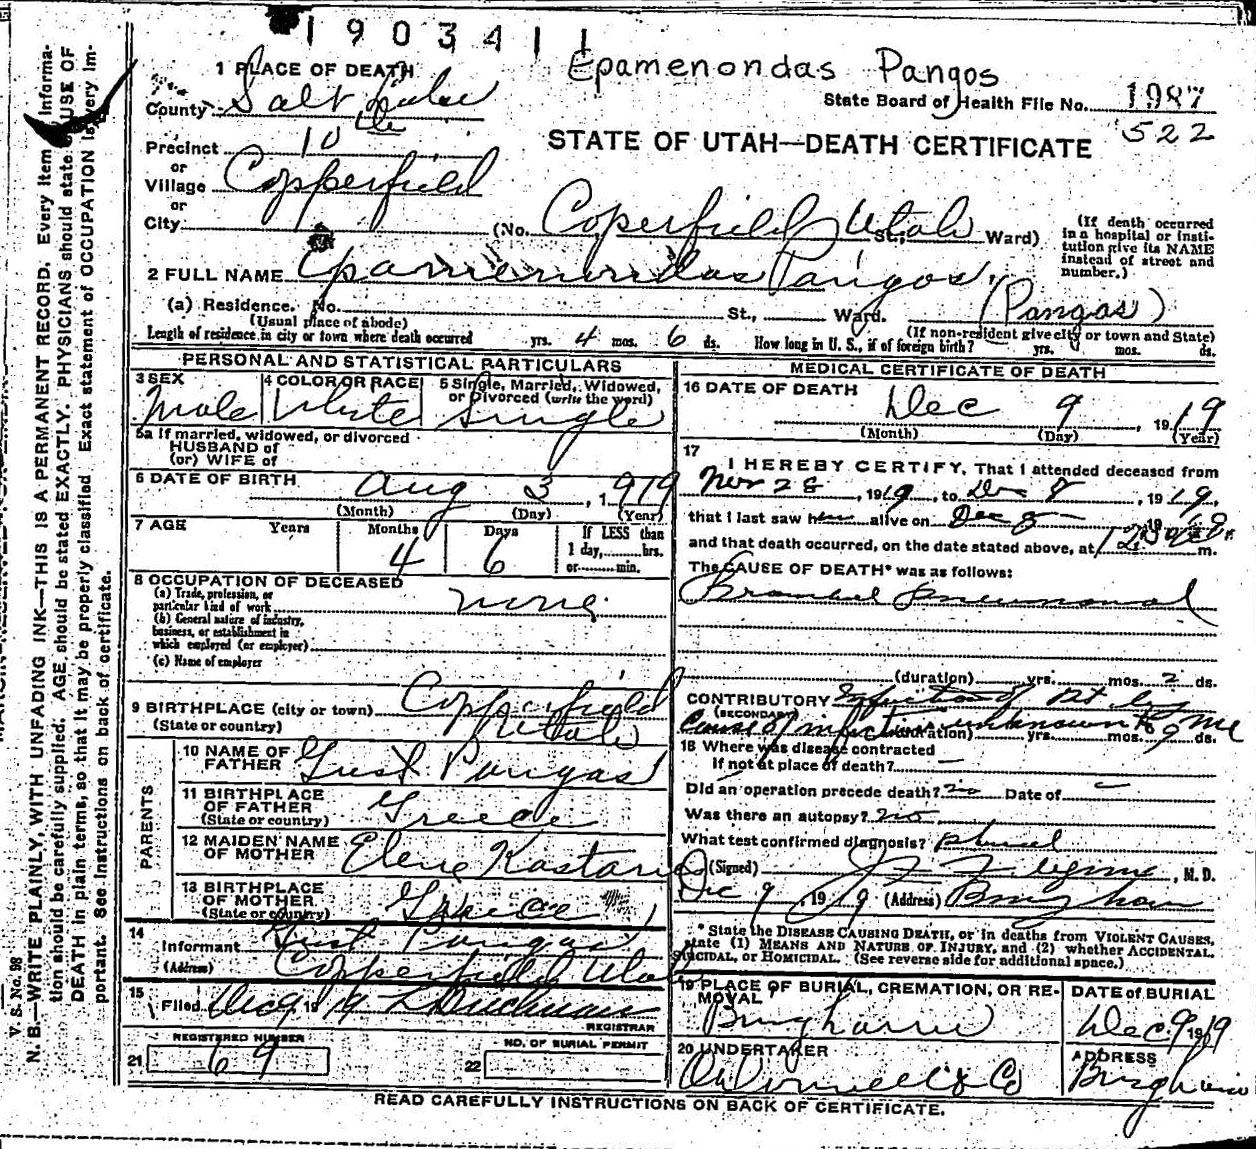 1903411
Epamenondas Pangos
1 PLACE OF DEATH
State Board of Health File No. 1987
County Salt Lake
522
STATE OF UTAH—DEATH CERTIFICATE
Precinct 10th
or
Village Copperfield
or
City (No. Coperfield, Utah St., Ward)
(If death occurred in a hospital or insti-
tution give its NAME instead of street and number.)
2 FULL NAME Epamenondas Pangos
(a) Residence. No. St., Ward. (Pangos)
(Usual place of abode) (If non-resident give city or town and State)
Length of residence in city or town where death occurred yrs. 4 mos. 6 ds. How long in U. S., if of foreign birth? yrs. mos. ds.
PERSONAL AND STATISTICAL PARTICULARS
3 SEX Male
4 COLOR OR RACE White
5 Single, Married, Widowed, or Divorced (write the word) Single
5a If married, widowed, or divorced
HUSBAND of
(or) WIFE of
6 DATE OF BIRTH Aug 3, 1919
(Month) (Day) (Year)
7 AGE Years Months 4 Days 6 If LESS than 1 day, hrs. or min.
8 OCCUPATION OF DECEASED
(a) Trade, profession, or particular kind of work none
(b) General nature of industry, business, or establishment in which employed (or employer)
(c) Name of employer
9 BIRTHPLACE (city or town) Copperfield
(State or country) Utah
PARENTS
10 NAME OF FATHER Gust Pangas
11 BIRTHPLACE OF FATHER (State or country) Greece
12 MAIDEN NAME OF MOTHER Elene
13 BIRTHPLACE OF MOTHER (State or country) Greece
14
Informant Gust Pangas
(Address) Copperfield Utah
15 Filed Dec 9 19
REGISTRAR
REGISTERED NUMBER
21 69
NO. OF BURIAL PERMIT
22
MEDICAL CERTIFICATE OF DEATH
16 DATE OF DEATH Dec 9, 1919
(Month) (Day) (Year)
17
I HEREBY CERTIFY, That I attended deceased from
Nov 28, 1919, to Dec 8, 1919,
that I last saw him alive on Dec 8 19
and that death occurred, on the date stated above, at m.
The CAUSE OF DEATH* was as follows:
(duration) yrs. mos. 2 ds.
CONTRIBUTORY Infection of
(SECONDARY)
Cause of infection unknown to me
(duration) yrs. mos. 9 ds.
18 Where was disease contracted
If not at place of death?
Did an operation precede death? no Date of
Was there an autopsy? no
What test confirmed diagnosis?
(Signed) , M. D.
Dec 9, 1919 (Address) Bingham
* State the DISEASE CAUSING DEATH, or in deaths from VIOLENT CAUSES, state (1) MEANS AND NATURE OF INJURY, and (2) whether ACCIDENTAL, SUICIDAL, or HOMICIDAL. (See reverse side for additional space.)
19 PLACE OF BURIAL, CREMATION, OR RE-
MOVAL Bingham
DATE of BURIAL Dec 9 1919
20 UNDERTAKER O'Donnell & Co
ADDRESS Bingham
READ CAREFULLY INSTRUCTIONS ON BACK OF CERTIFICATE.
V. S. No. 98
N. B.—WRITE PLAINLY, WITH UNFADING INK—THIS IS A PERMANENT RECORD. Every item Informa-
tion should be carefully supplied. AGE should be stated EXACTLY. PHYSICIANS should state CAUSE OF
DEATH in plain terms, so that it may be properly classified. Exact statement of OCCUPATION is very im-
portant. See instructions on back of certificate.